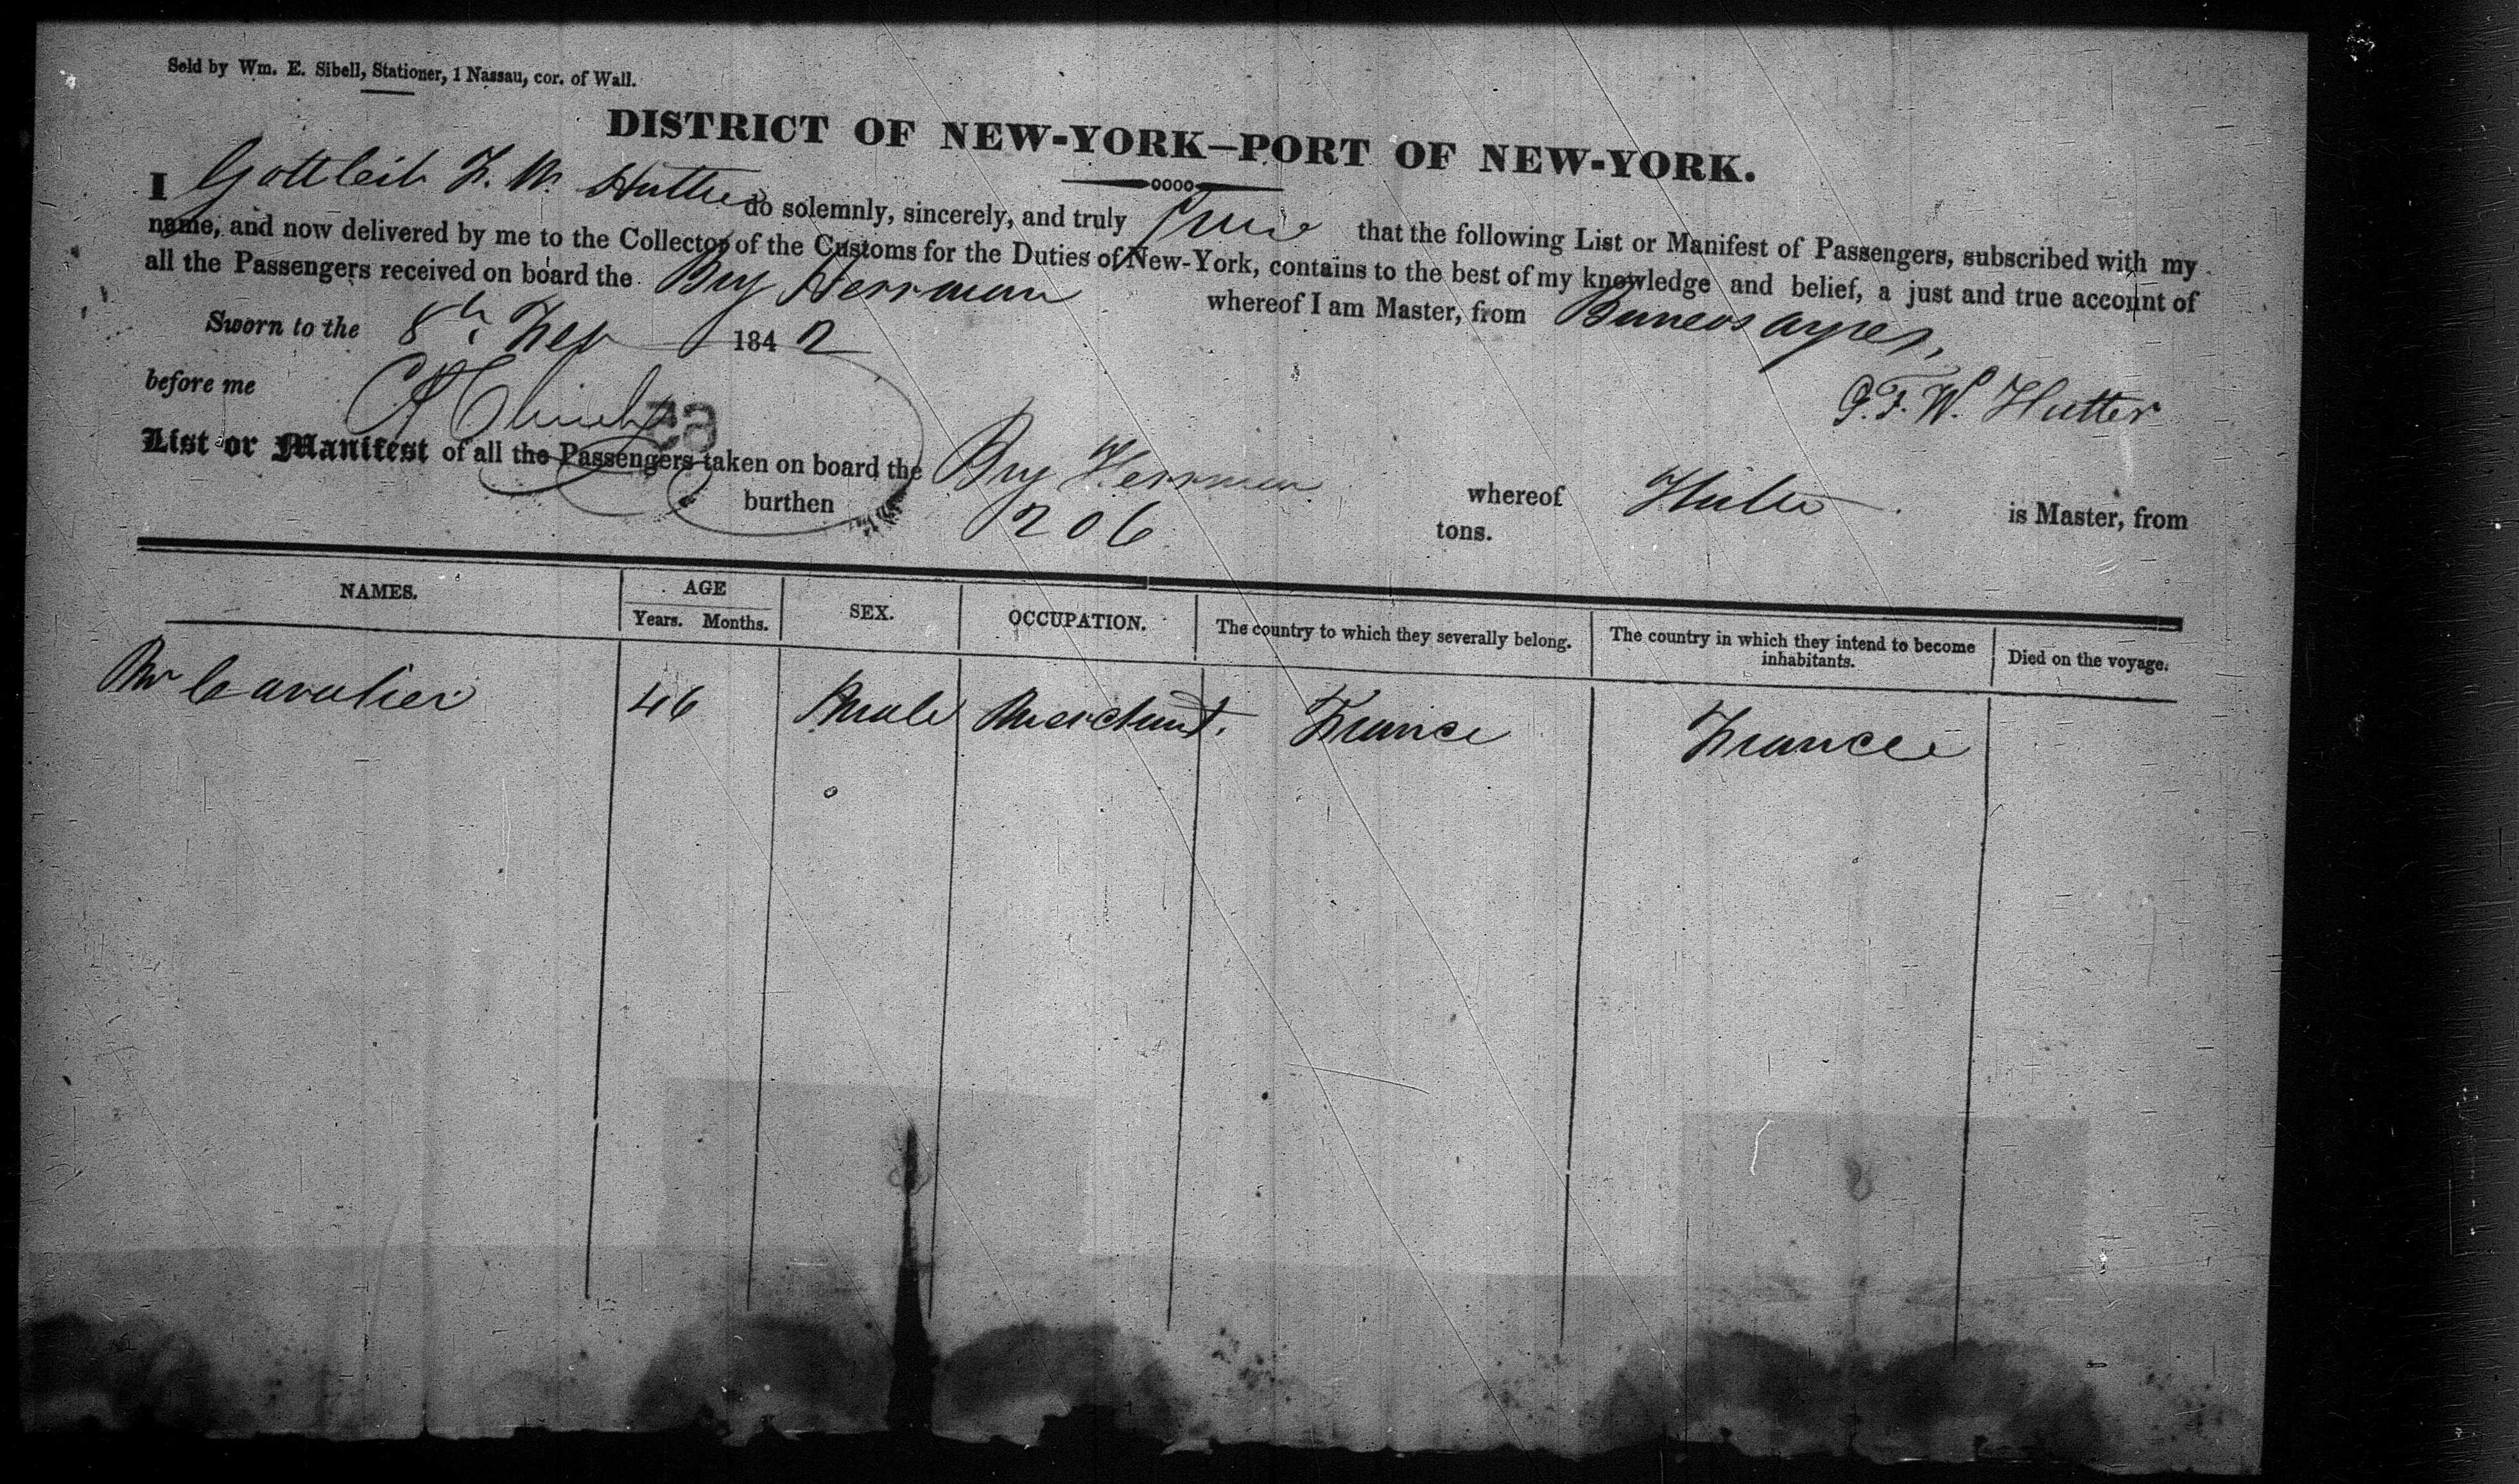 Sold by Wm. E. Sibell, Stationer, 1 Nassau, cor. of Wall.
DISTRICT OF NEW-YORK—PORT OF NEW-YORK.
I Gottleib F. W. Hutter do solemnly, sincerely, and truly that the following List or Manifest of Passengers, subscribed with my
name, and now delivered by me to the Collector of the Customs for the Duties of New-York, contains to the best of my knowledge and belief, a just and true account of
all the Passengers received on board the Brig Herrman whereof I am Master, from Buneos ayres,
Sworn to the 8th Feb 1842
before me
G. F. W. Hutter
List or Manifest of all the Passengers taken on board the Brig Herrman whereof Hutter is Master, from
burthen 206 tons.
NAMES. AGE SEX. OCCUPATION. The country to which they severally belong. The country in which they intend to become inhabitants. Died on the voyage.
Years. Months.
Mr Cavalier 46 Male Merchant. France France